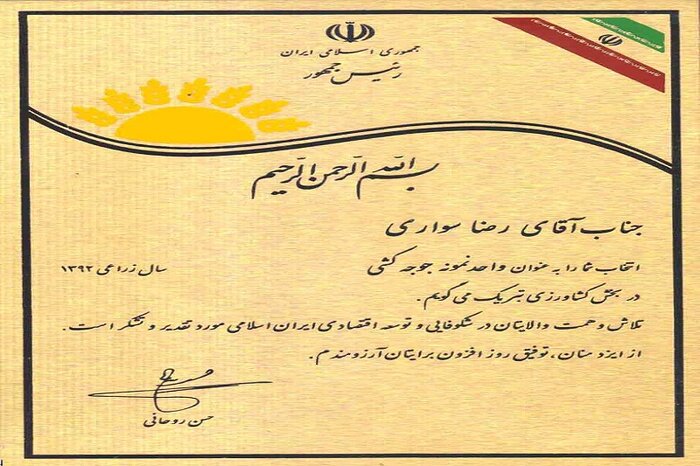 جمهوری اسلامی ایران
رئیس جمهور
بسم الله الرحمن الرحیم
جناب آقای رضا سواری
انتخاب شما را به عنوان واحد نمونه جوجه کشی سال زراعی ۱۳۹۲
در بخش کشاورزی تبریک می گویم.
تلاش و همت والایتان در شکوفایی و توسعه اقتصادی ایران اسلامی مورد تقدیر و تشکر است.
از ایزد منان، توفیق روز افزون برایتان آرزومندم.
حسن روحانی